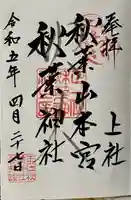 奉拝
上社
秋葉山本宮
秋葉神社
令和五年四月二十七日